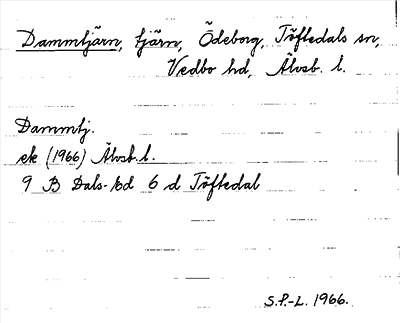 Dammtjärn, tjärn, Ödeborg, Töftedals sn,
Vedbo hd, Älvsb. l.
Dammtj.
ek (1966) Älvsb. l.
9 B Dals-Ed 6 d Töftedal
S.P.-L. 1966.